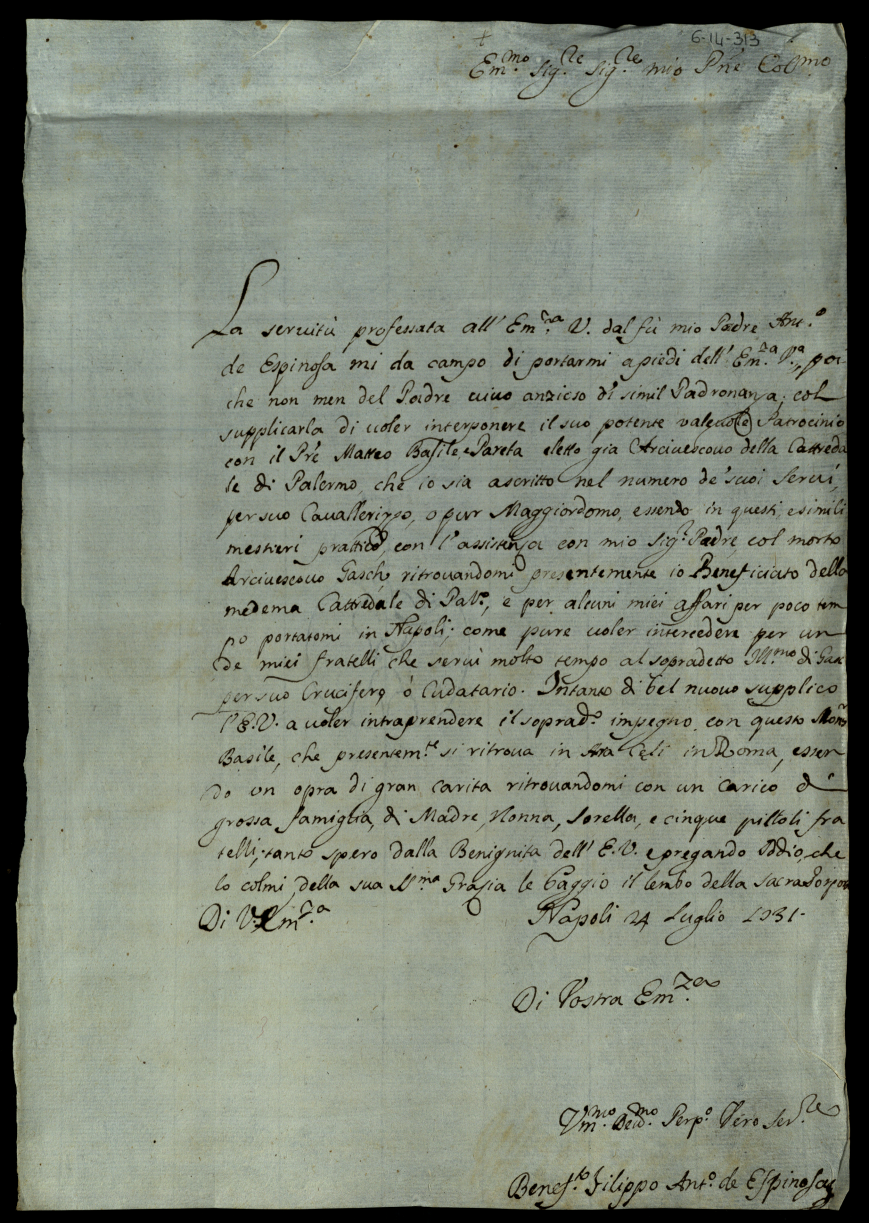 6-14-313
+
Em.mo Sig.re Sig.re mio Prīe Col.mo
La seruitù professata all' Em.za V. dal fù mio Padre Ant.o
de Espinosa mi da campo di portarmi a piedi dell' Em.za V.a, poi
che non men del Padre uiuo anzioso di simil Padronanza, col
supplicarla di uoler interponere il suo potente valeuole Patrocinio
con il Prē Matteo Basile, e Pareta eletto gia Arciuescouo della Cattreda
le di Palermo, che io sia ascritto nel numero de' suoi Serui,
per suo Cauallerizzo, o pur Maggiordomo, essendo in questi, e simili
mestieri prattico, con l'assistenza con mio Sig.r Padre, col morto
Arciuescouo Gasch, ritrouandomi presentemente io Beneficiato della
medema Cattredale di Pal.o, e per alcuni miei affari per poco tem
po portatomi in Napoli; come pure uoler intercedere per un
de miei fratelli che seruì molto tempo al sopradetto Ill.mo di Gasc
per suo Crucifero, ò Cudatario. Intanto di bel nuouo supplico
l'E.V. a uoler intraprendere il soprad.o impegno, con questo Mons.r
Basile, che presentem.te si ritroua in Ara Celi in Roma, essen
do un opra di gran carita ritrouandomi con un carico di
grossa famiglia, di Madre, Nonna, Sorella, e cinque piccoli fra
telli; tanto spero dalla Benignita dell' E.V. e pregando Iddio, che
lo colmi della sua S.ma Grazia le baggio il lembo della sacra Porpora
Di V. Em.za Napoli 24 Luglio 1731.
Di Vostra Em.za
Um.mo Deu.mo Perp.o Vero Ser.re
Benef.to Filippo Ant.o de Espinosa